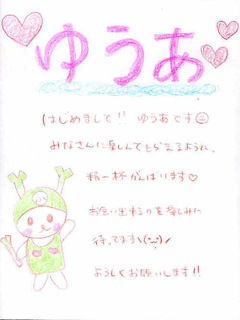 ゆうあ
はじめまして!! ゆうあです☺
みなさんに楽しんでもらえるように、
精一杯がんばります♡
お会い出来るのを楽しみに
待ってます\(^-^)/
よろしくお願いします!!